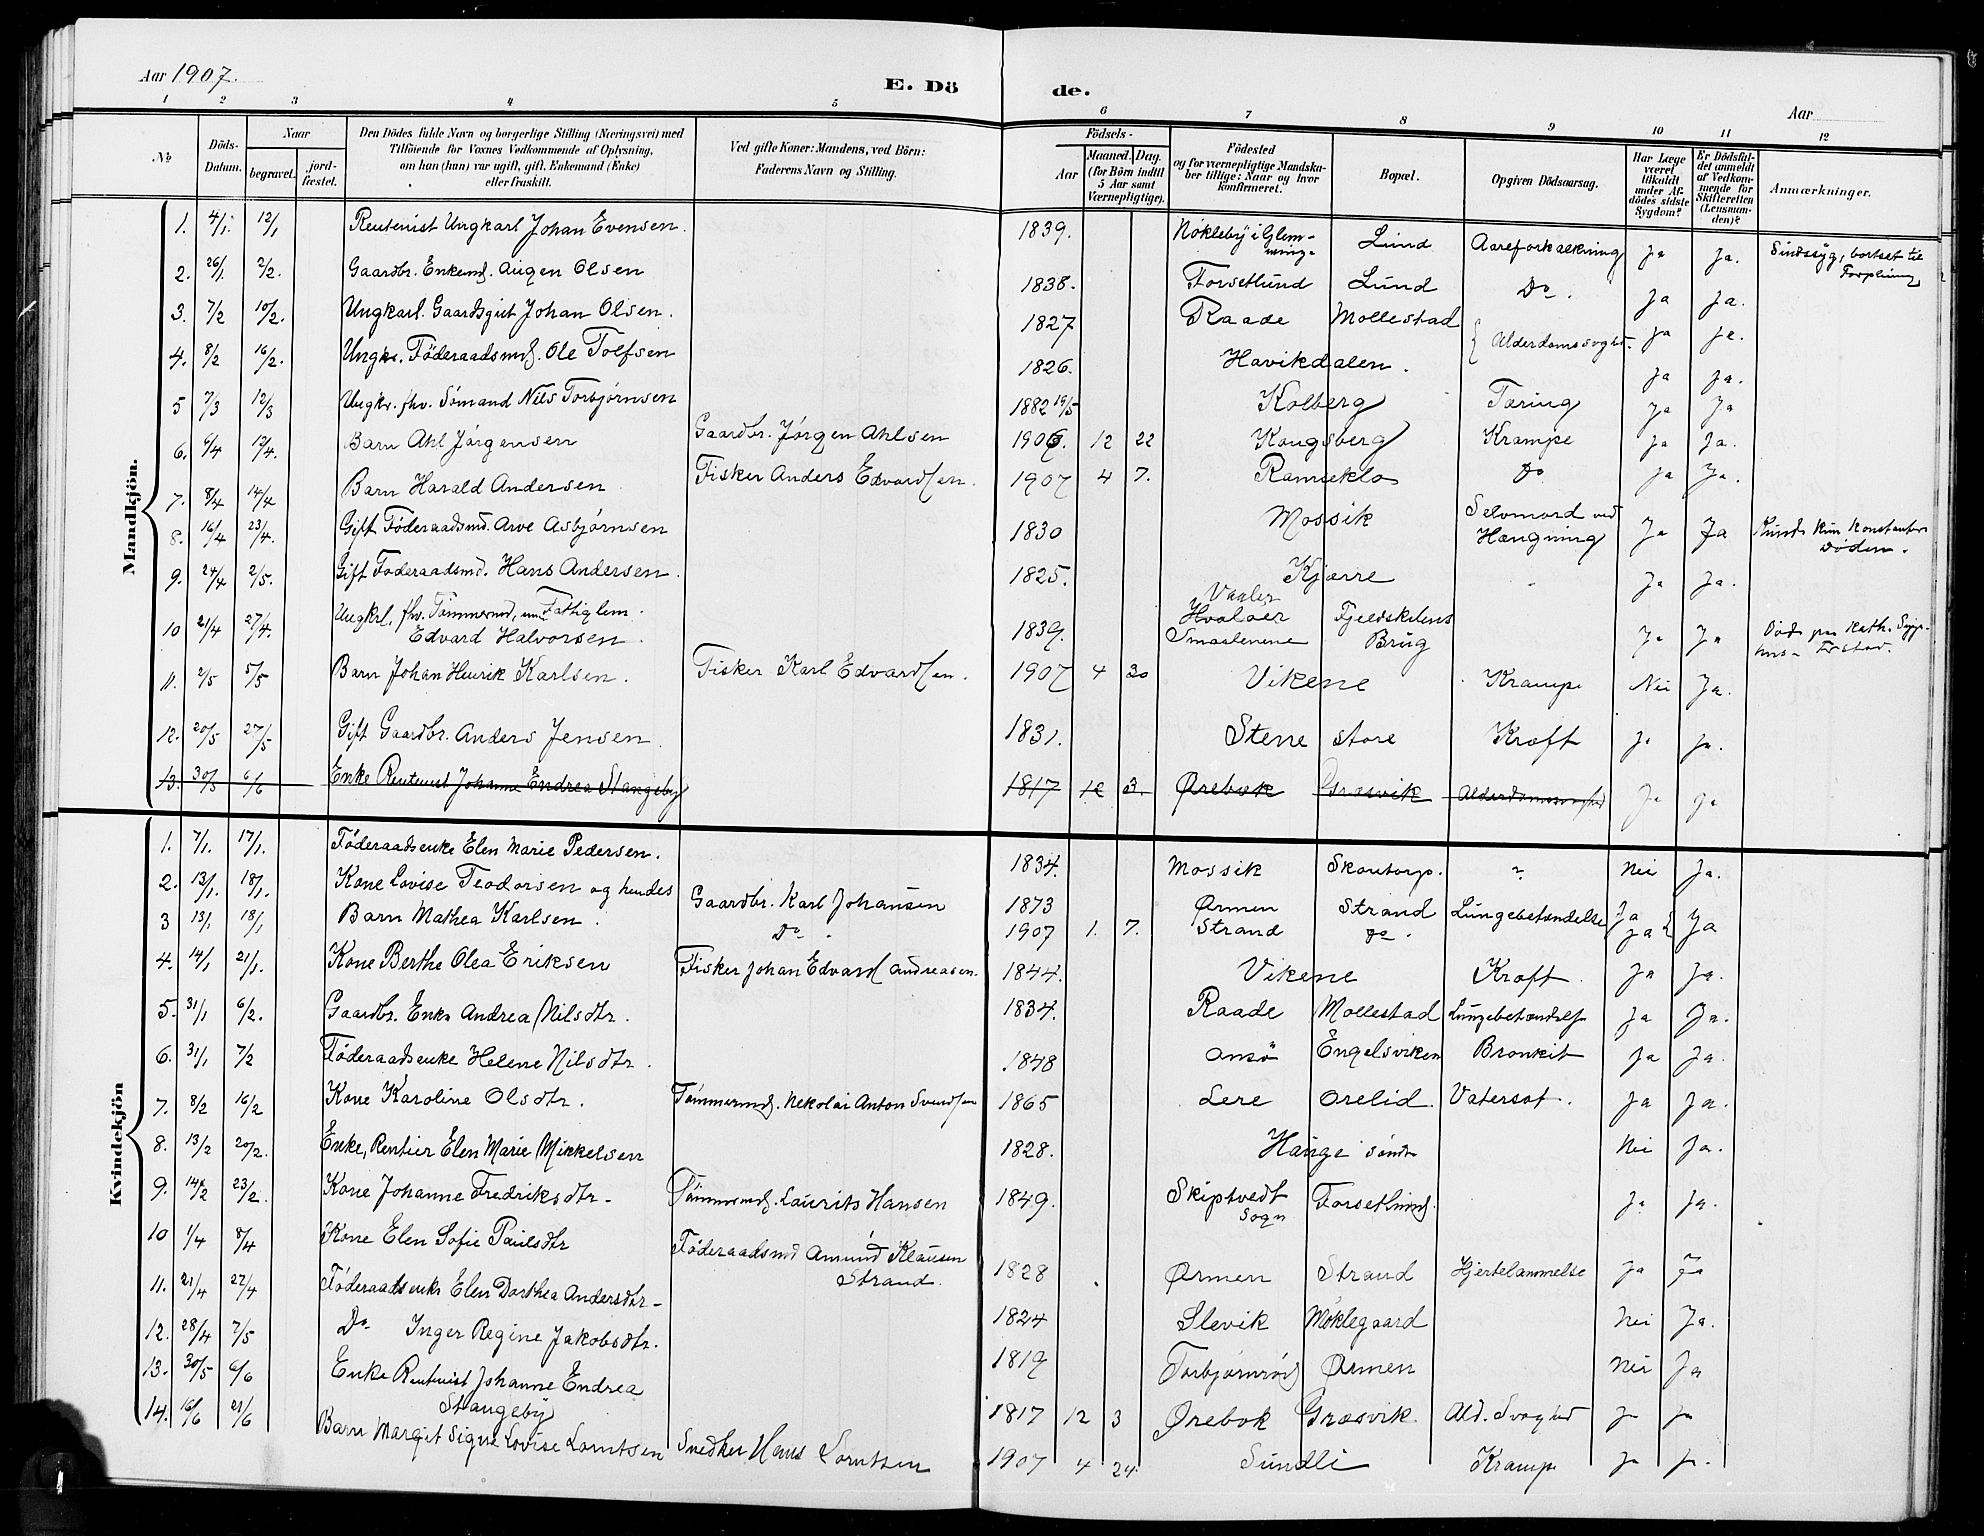 Aar 1907.
E. Dö de.
Aar
1 2 3 4 5 6 7 8 9 10 11 12
No
Döds-Datum.
Naar
begravet.
jord-fæstet.
Den Dödes fulde Navn og borgerlige Stilling (Næringsvei) med
Tilföiende for Voxnes Vedkommende af Oplysning,
om han (hun) var ugift, gift, Enkemand (Enke)
eller fraskilt.
Ved gifte Koner: Mandens, ved Börn:
Faderens Navn og Stilling.
Födsels-
Aar
Maaned. Dag.
(for Börn indtil
5 Aar samt
Værnepligtige).
Födested
og for værnepligtige Mandska-
ber tillige: Naar og hvor
konfirmeret.
Bopæl.
Opgiven Dödsaarsag.
Har Læge
været
tilkaldt
under Af-
dödes sidste
Sygdom?
Er Dödsfal-
det anmeldt
af Vedkom-
mende for
Skifteretten
(Lensman-
den)?
Anmærkninger.
Mandkjön.
1. 4/1. 12/1 Rentenist Ungkarl Johan Evensen. 1839. Nøkleby i Glem-minge Lund Aareforkalkning Ja Ja. Sindssyg, bortsat til Forpleining
2. 26/1 2/2. Gaardbr. Enkemd. Augen Olsen 1838. Forsetlund Lund Do. Ja Ja.
3. 7/2 10/2. Ungkarl. Gaardsgut Johan Olsen. 1827 Raade Mollestad { Alderdomssvaghed. Ja Ja.
4. 8/2 16/2. Ungkr. Föderaadsmd. Ole Tolfsen 1826. Havikdalen. Ja Ja.
5 7/3 12/3 Ungkr. fhv. Sömand Nils Torbjørnsen 1882 19/5 Kolberg Tæring Ja Ja
6. 6/4 12/4. Barn Ahl Jørgensen Gaardbr. Jørgen Ahlsen 1906. 12 22 Kongsberg Krampe Ja Ja.
7. 8/4 14/4 Barn Harald Andersen Fisker Anders Edvardsen. 1907 4 7. Ramseklo Do Ja Ja.
8. 16/4 23/4. Gift Föderaadsmd. Arve Asbjørnsen 1830 Mossik Selvmord ved Hængning Ja Ja Kunde kun konstantere Døden.
9. 24/4 2/5. Gift Föderaadsmd. Hans Andersen. 1825. Kjærre Ja Ja.
10 21/4 27/4. Ungkrl, fhv. Tömmermd, Fattiglem.
Edvard Halvorsen. 1839. Vaaler Hvaløer Smaalenene Fjeldskilens Brug Ja Ja Død paa Kath. Syge-hus.
11. 2/5 5/5 Barn Johan Henrik Karlsen. Fisker Karl Edvardsen. 1907 4 30 Vikene Krampe Nei Ja.
12. 20/5 27/5 Gift Gaardbr. Anders Jensen 1831. Stene store Kræft Ja Ja.
13. 30/5 6/6 Enke Rentenist Johanne Endrea Stangeby 1817 12 3. Ørebæk Græsvik Alderdomssvaghed Ja Ja
Kvindekjön
1. 7/1. 17/1. Föderaadsenke Elen Marie Pedersen. 1834. Mossik Skoutorp. " Nei Ja.
2. 13/1. 18/1. Kone Lovise Teodorsen og hendes Gaardbr. Karl Johansen 1873 Ørmen Strand Lungebetændelse Ja Ja
3 13/1 18/1 Barn Mathea Karlsen. Do. 1907 1. 7. Strand Do. Ja
4. 14/1 21/1. Kone Berthe Olea Eriksen Fisker Johan Edvard Andreasen. 1844. Vikene Kræft. Ja Ja.
5. 31/1 6/2. Gaardbr. Enke Andrea Nilsdtr. 1834. Raade Mollestad Lungebetændelse Ja Ja.
6. 31/1 7/2 Föderaadsenke Helene Nilsdtr. 1848 Onsö Engelsviken Bronkit Ja Ja.
7. 8/2 16/2 Kone Karoline Olsdtr. Tömmermd. Nekolai Anton Svendsen 1865 Lere Orelid Vatersot. Ja Ja.
8. 13/2 20/2. Enke, Rentier Elen Marie Mikkelsen 1828. Hauge söndre Nei Ja.
9. 14/2 23/2. Kone Johanne Fredriksdtr. Tömmermd. Laurits Hansen 1849. Skiptvedt Sogn Forsetlund. Ja Ja.
10 1/4 8/4 Kone Elen Sofie Paulsdtr Föderaadsmd Amund Klausen Strand. 1828 Ørmen Strand Hjertelammelse Ja Ja
11. 21/4 27/4 Föderaadsenke Elen Dorthea Andersdtr. 1824 Slevik Møklegaard Nei Ja.
12. 28/4 7/5 Do Inger Regine Jakobsdtr. 1819 Torbjørnrød Ørmen Nei Ja
13. 30/5 6/6 Enke Rentenist Johanne Endrea
Stangeby 1817 12 3 Ørebæk Græsvik Ald. Svaghed Ja Ja
14. 16/6 21/6 Barn Margit Signe Lovise Lorntsen Snedker Hans Lorntsen 1907 4 24 Sundli Krampe Ja Ja.